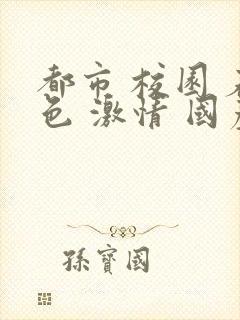 都市 校園
色 激情 國
孫寶國